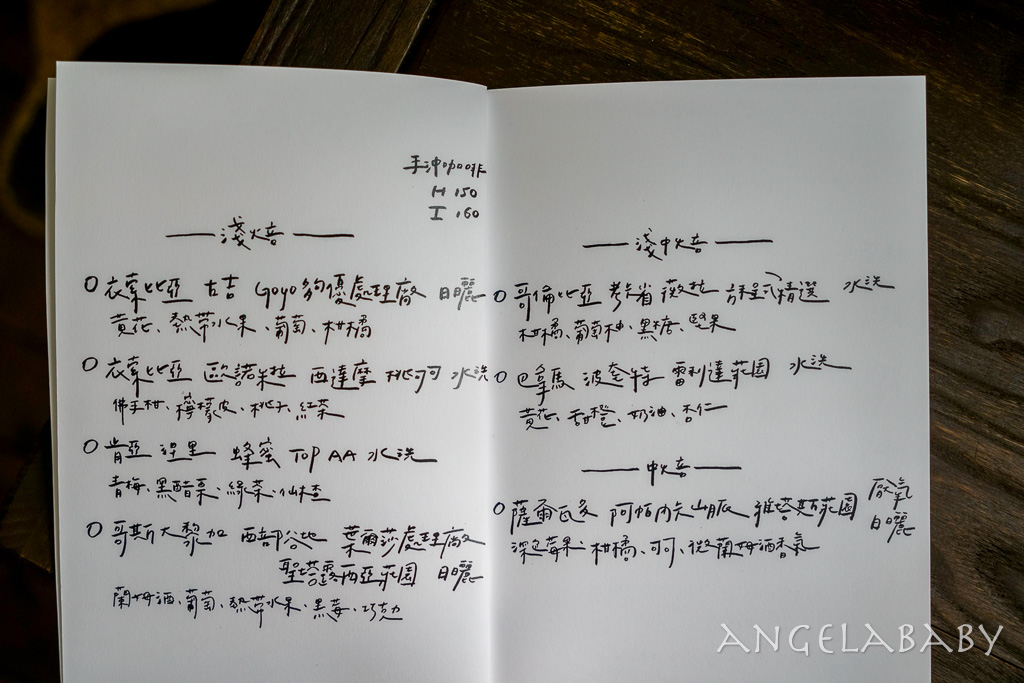 手沖咖啡
H 150
I 160
淺火焙
衣索比亞 古吉 Goyo 夠優處理廠 日曬
黃花、熱帶水果、葡萄、柑橘
衣索比亞 歐諾米拉 西達摩 桃可可 水洗
佛手柑、檸檬皮、桃子、紅茶
肯亞 涅里 蜂蜜 TOP AA 水洗
青梅、黑醋栗、綠茶、仙楂
哥斯大黎加 西部谷地 葉爾莎處理廠
聖塔露西亞莊園 日曬
蘭姆酒、葡萄、熱帶水果、黑莓、巧克力
淺中火焙
哥倫比亞 考卡省 薇拉 方程式精選 水洗
柑橘、葡萄柚、黑糖、堅果
巴拿馬 波奎特 雷利達莊園 水洗
黃花、甜橙、奶油、杏仁
中火焙
薩爾瓦多 阿帕內卡山脈 維塔莊園 厭氧
日曬
深色莓果、柑橘、可可、微蘭姆酒香氣
ANGELABABY